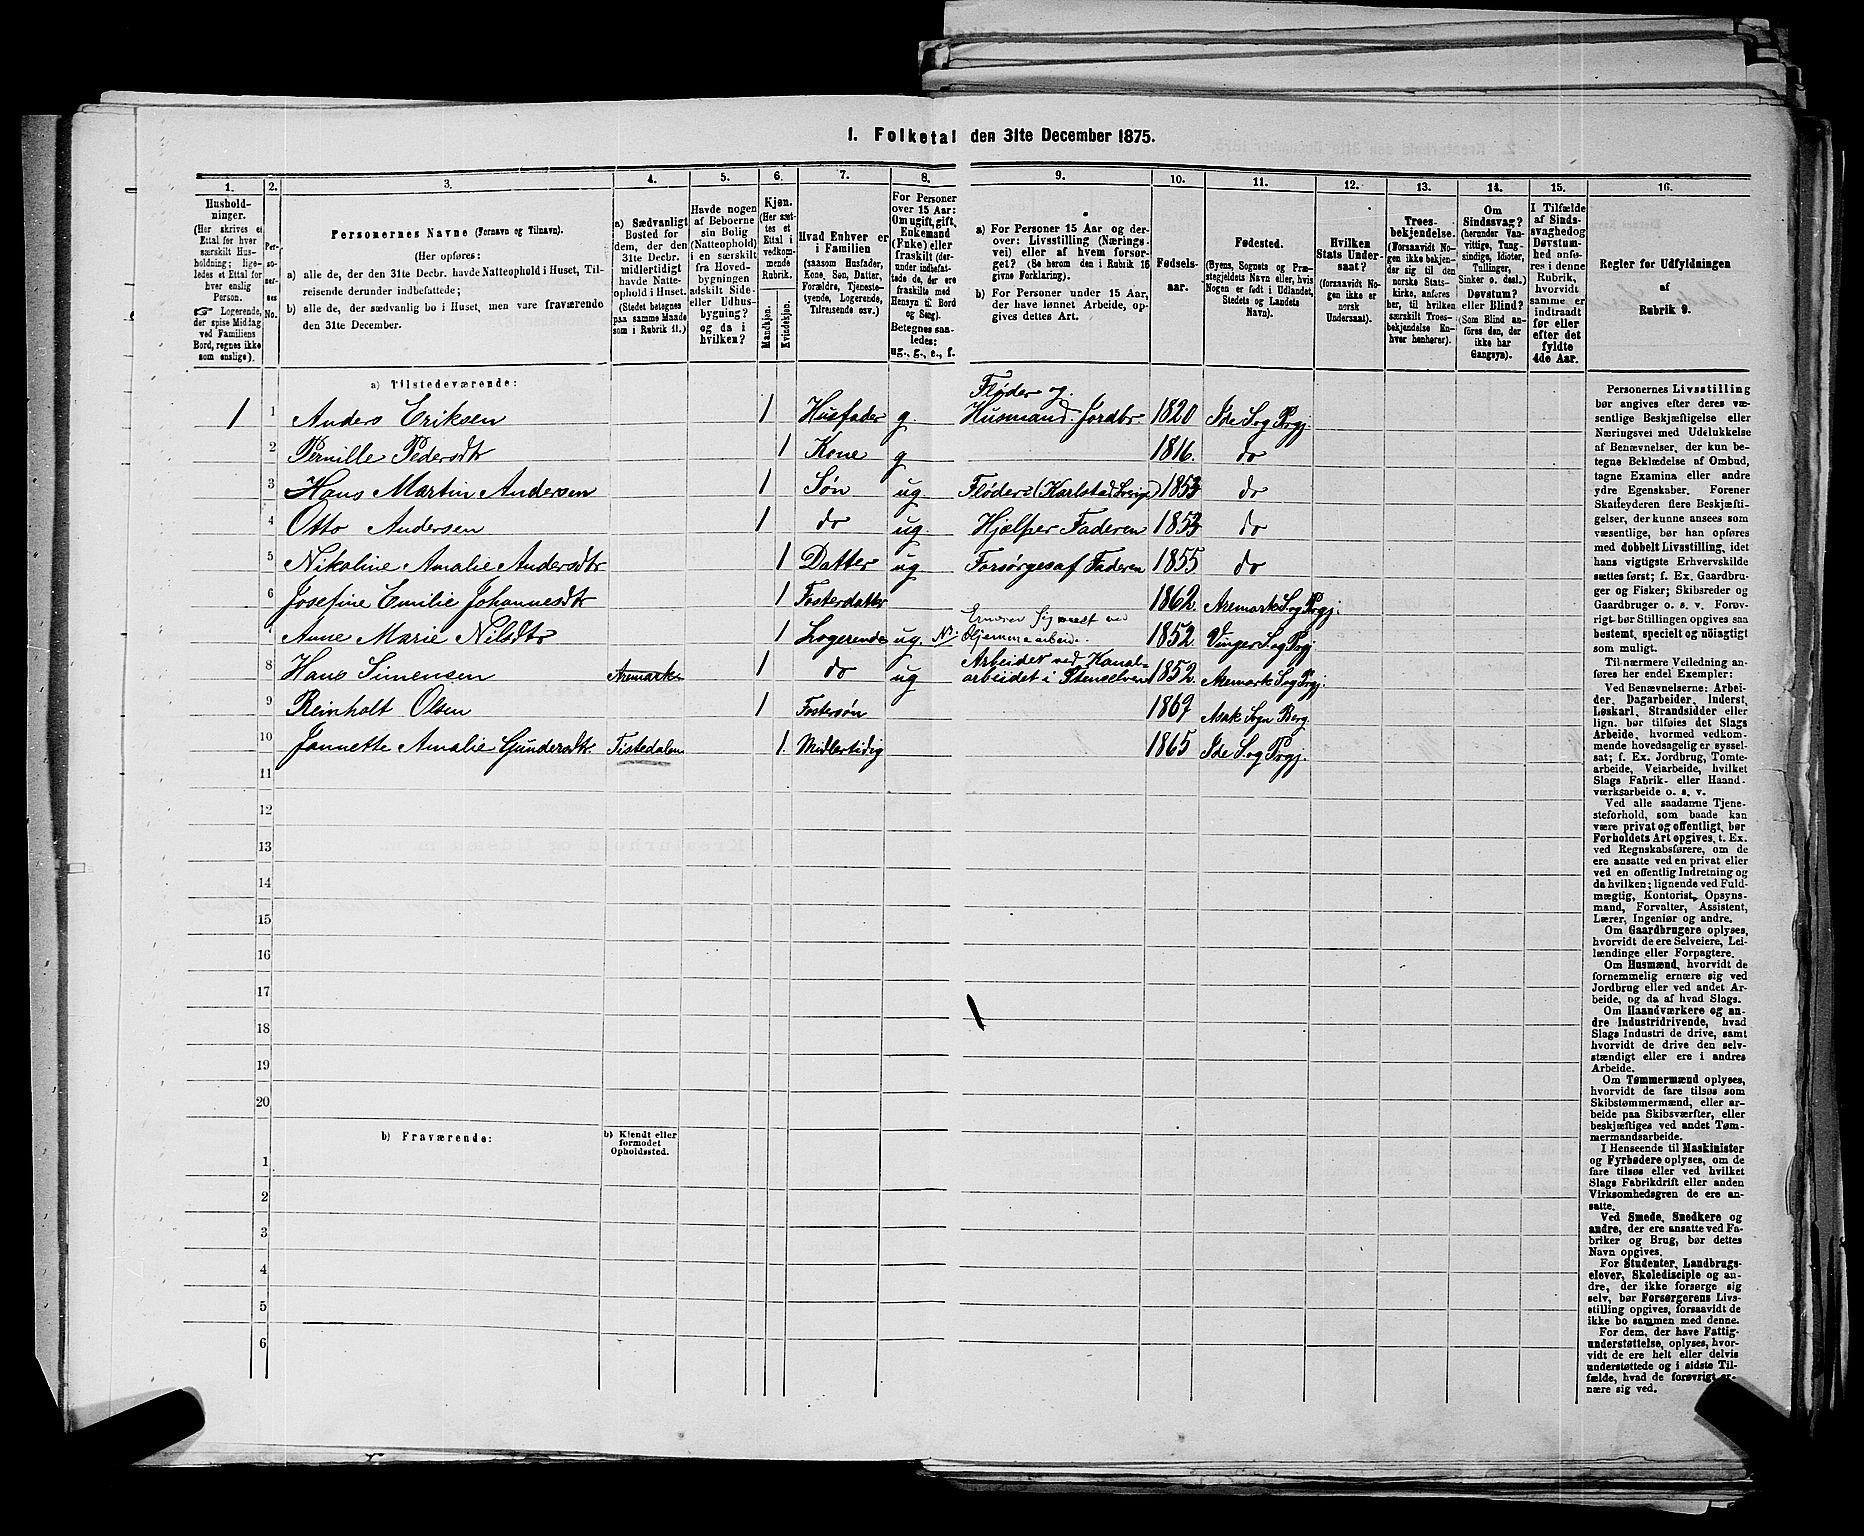 1. Folketal den 31te December 1875.
1. 2. 3. 4. 5. 6. 7. 8. 9. 10. 11. 12. 13. 14. 15. 16.
Hushold-
ninger.
(Her skrives et
Ettal for hver
særskilt Hus-
holdning; lige-
ledes et Ettal for
hver enslig
Person.
☞ Logerende,
der spise Middag
ved Familiens
Bord, regnes ikke
som enslige).
Per-
so-
ner-
nes
No.
Personernes Navne (Fornavn og Tilnavn).
(Her opføres:
a) alle de, der den 31te Decbr. havde Natteophold i Huset, Til-
reisende derunder indbefattede;
b) alle de, der sædvanlig bo i Huset, men vare fraværende
den 31te December.
a) Sædvanligt
Bosted for
dem, der den
31te Decbr.
midlertidigt
havde Natte-
ophold i Huset.
(Stedet betegnes
paa samme Maade
som i Rubrik 11.)
Havde nogen
af Beboerne
sin Bolig
(Natteophold)
i en særskilt
fra Hoved-
bygningen
adskilt Side-
eller Udhus-
bygning?
og da i
hvilken?
Kjøn.
(Her sæt-
tes et
Ettal i
vedkom-
mende
Rubrik.
Mandkjøn.
Kvindekjøn.
Hvad Enhver er
i Familien
(saasom Husfader,
Kone, Søn, Datter,
Forældre, Tjeneste-
tyende, Logerende,
Tilreisende osv.)
For Personer
over 15 Aar:
Om ugift, gift,
Enkemand
(Enke) eller
fraskilt (der-
under indbefat-
tede de, der ere
fraskilte med
Hensyn til Bord
og Seng).
Betegnes saa-
ledes:
ug., g., e., f.
a) For Personer 15 Aar og der-
over: Livsstilling (Nærings-
vei) eller af hvem forsør-
get? (Se herom den i Rubrik 16
givne Forklaring).
b) For Personer under 15 Aar,
der have lønnet Arbeide, op-
gives dettes Art.
Fødsels-
aar.
Fødested.
(Byens, Sognets og Præ-
stegjeldets Navn eller, hvis
Nogen er født i Udlandet,
Stedets og Landets
Navn).
Hvilken
Stats Under-
saat?
(forsaavidt No-
gen ikke er
norsk
Undersaat).
Troes-
bekjendelse.
(Forsaavidt No-
gen ikke bekjen-
der sig til den
norske Stats-
kirke, anføres
her, til hvilken
særskilt Troes-
bekjendelse En-
hver henhører).
Om
Sindssvag?
(herunder Van-
vittige, Tung-
sindige, Idioter,
Tullinger,
Sinker o. desl.)
Døvstum?
eller Blind?
(Som Blind an-
føres den, der
ikke har
Gangsyn).
I Tilfælde
af Sinds-
svaghed og
Døvstum-
hed anfø-
res i denne
Rubrik,
hvorvidt
samme er
indtraadt
før eller
efter det
fyldte
4de Aar.
Regler for Udfyldningen
af
Rubrik 9.
a) Tilstedeværende:
1 1 Anders Eriksen 1 Husfader g. Fløder og Husmand. Jordbr. 1820 Ide S. og Prgj.
2 Pernille Pedersdtr 1 Kone g 1816. do
3 Hans Martin Andersen 1 Søn ug. Fløder (Karlstad Sverige) 1853 do
4 Otto Andersen 1 do ug. Hjælper Faderen 1853 do
5 Nikoline Amalie Andersdtr 1 Datter ug Forsørges af Faderen 1855 do
6 Josefine Emilie Johannesdtr 1 Fosterdatter 1862. Aremark S. og Prgj.
7 Anne Marie Nilsdtr 1 Logerende ug. Ernærer sig ved Hjemmearbeide. 1852. Vinger S. og Prgj.
8 Hans Simensen Aremark 1 do ug Arbeider ved Kanal=
arbeidet i Stenselven 1852. Aremark S. og Prgj.
9 Reinholt Olsen 1 Fostersøn 1867 Asak Sogn Berg
10 Jannette Amalie Gundersdtr. Tistedalen 1 Midlertidig 1865 Ide S. og Prgj.
11
12
13
14
15
16
17
18
19
20
b) Fraværende:
b) Kjendt eller
formodet
Opholdssted.
1
2
3
4
5
6
Personernes Livsstilling
bør angives efter deres væ-
sentlige Beskjæftigelse eller
Næringsvei med Udelukkelse
af Benævnelser, der kun be-
tegne Beklædelse af Ombud,
tagne Examina eller andre
ydre Egenskaber. Forener
Skatteyderen flere Beskjæfti-
gelser, der kunne ansees som
væsentlige, bør han opføres
med dobbelt Livsstilling, idet
hans vigtigste Erhvervskilde
sættes først; f. Ex. Gaardbru-
ger og Fisker; Skibsreder og
Gaardbruger o. s. v. Forøv-
rigt bør Stillingen opgives saa
bestemt, specielt og nøiagtigt
som muligt.
Til nærmere Veiledning an-
føres her endel Exempler:
Ved Benævnelserne: Arbei-
der, Dagarbeider, Inderst,
Løskarl, Strandsidder eller
lign. bør tilføies det Slags
Arbeide, hvormed vedkom-
mende hovedsagelig er syssel-
sat; f. Ex. Jordbrug, Tomte-
arbeide, Veiarbeide, hvilket
Slags Fabrik- eller Haand-
værksarbeide o. s. v.
Ved alle saadanne Tjene-
steforhold, som baade kan
være privat og offentligt, bør
Forholdets Art opgives, t. Ex.
ved Regnskabsførere, om de
ere ansatte ved en privat eller
ved en offentlig Indretning og
da hvilken; lignende ved Fuld-
mægtig, Kontorist, Opsyns-
mand, Forvalter, Assistent,
Lærer, Ingeniør og andre.
Om Gaardbrugere oplyses,
hvorvidt de ere Selveiere, Lei-
lændinge eller Forpagtere.
Om Husmænd, hvorvidt de
fornemmelig ernære sig ved
Jordbrug eller ved andet Ar-
beide, og da af hvad Slags.
Om Haandværkere og an-
dre Industridrivende, hvad
Slags Industri de drive, samt
hvorvidt de drive den selv-
stændigt eller ere i andres
Arbeide.
Om Tømmermænd oplyses,
hvorvidt de fare tilsøs som
Skibstømmermænd, eller ar-
beide paa Skibsværfter, eller
beskjæftiges ved andet Tøm-
mermandsarbeide.
I Henseende til Maskinister
og Fyrbødere oplyses, om de
fare tilsøs eller ved hvilket
Slags Fabrikdrift eller anden
Virksomhedsgren de ere an-
satte.
Ved Smede, Snedkere og
andre, der ere ansatte ved Fa-
briker og Brug, bør dettes
Navn opgives.
For Studenter, Landbrugs-
elever, Skoledisciple og an-
dre, der ikke forsørge sig
selv, bør Forsørgerens Livs-
stilling opgives, forsaavidt de
ikke bo sammen med denne.
For dem, der have Fattig-
understøttelse, oplyses, hvor-
vidt de ere helt eller delvis
understøttede og i sidste Til-
fælde, hvad de forøvrigt er-
nære sig ved.